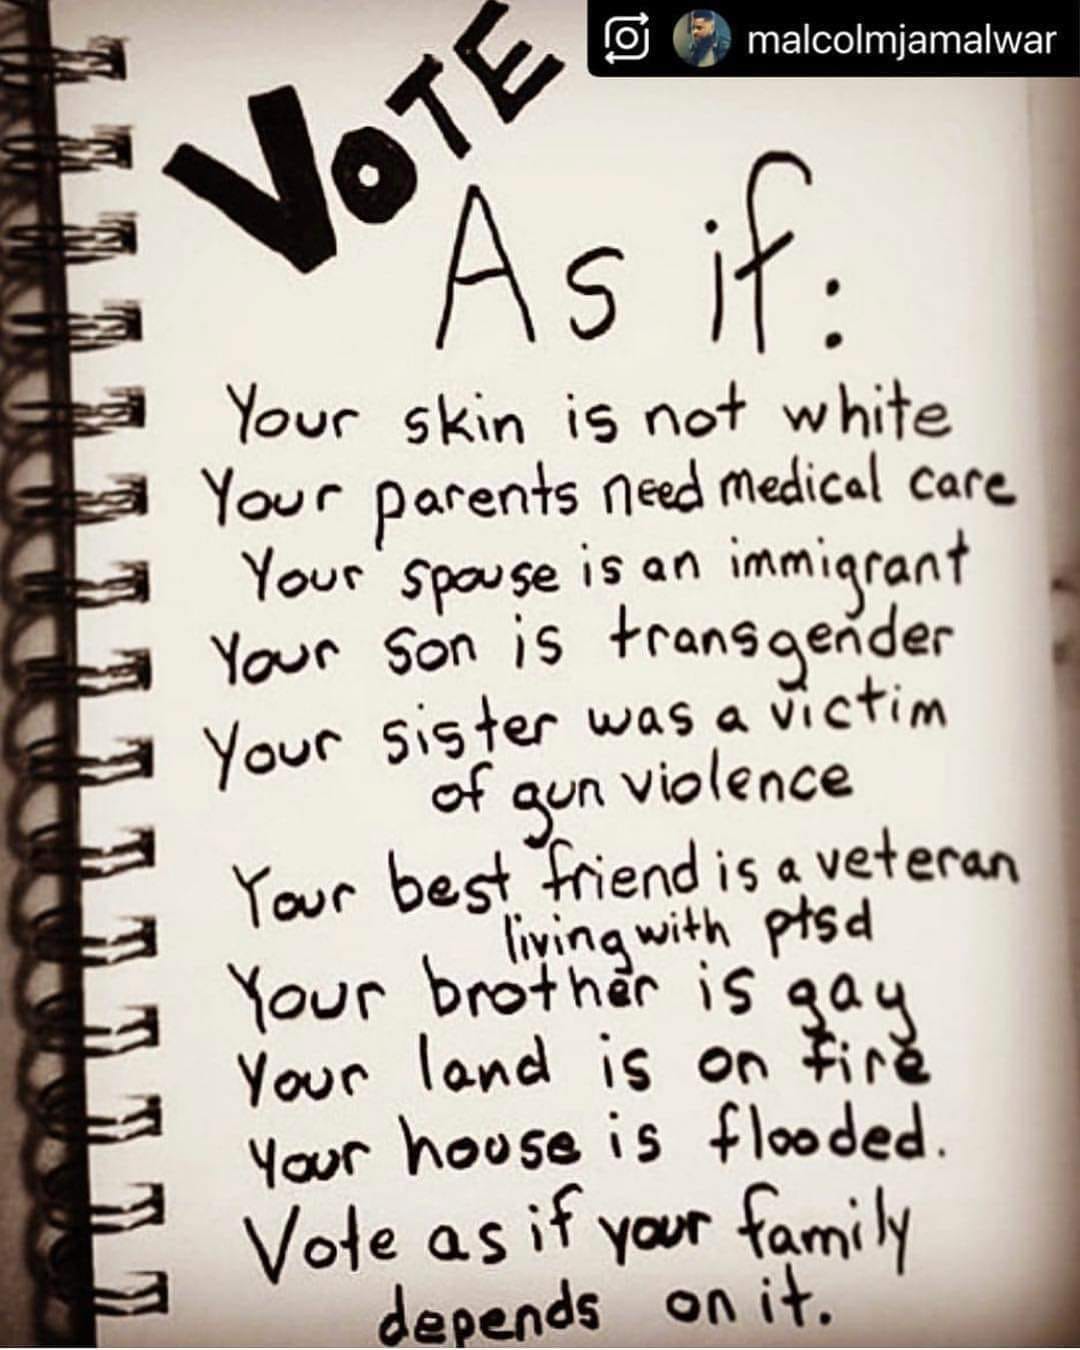 malcolmjamalwar
VOTE
As if:
Your skin is not white
Your parents need medical care
Your spouse is an immigrant
Your son is transgender
Your sister was a victim
of gun violence
Your best friend is a veteran
living with ptsd
Your brother is gay
Your land is on fire
Your house is flooded.
Vote as if your family
depends on it.